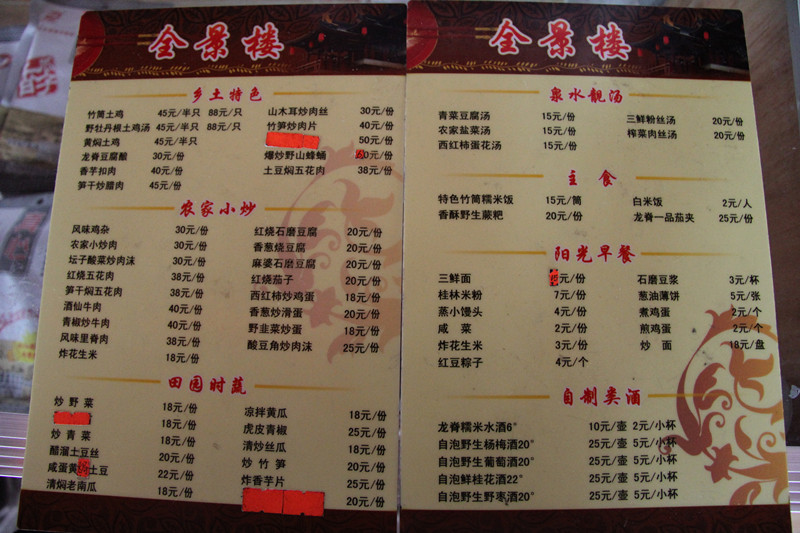 全景楼
乡土特色
竹筒土鸡 45元/半只 88元/只
野牡丹根土鸡汤 45元/半只 88元/只
黄焖土鸡 45元/半只
龙脊豆腐酿 30元/份
香芋扣肉 40元/份
笋干炒腊肉 45元/份
山木耳炒肉丝 30元/份
竹笋炒肉片 40元/份
50元/份
爆炒野山蜂蛹 0元/份
土豆焖五花肉 38元/份
农家小炒
风味鸡杂 30元/份
农家小炒肉 30元/份
坛子酸菜炒肉沫 30元/份
红烧五花肉 38元/份
笋干焖五花肉 38元/份
酒仙牛肉 40元/份
青椒炒牛肉 40元/份
风味里脊肉 38元/份
炸花生米 18元/份
红烧石磨豆腐 20元/份
香葱烧豆腐 20元/份
麻婆石磨豆腐 20元/份
红烧茄子 20元/份
西红柿炒鸡蛋 18元/份
香葱炒滑蛋 20元/份
野韭菜炒蛋 18元/份
酸豆角炒肉沫 25元/份
田园时蔬
炒野菜 18元/份
18元/份
炒青菜 18元/份
醋溜土豆丝 20元/份
咸蛋黄土豆 22元/份
清焖老南瓜 18元/份
凉拌黄瓜 18元/份
虎皮青椒 25元/份
清炒丝瓜 18元/份
炒竹笋 20元/份
炸香芋片 25元/份
20元/份
全景楼
泉水靓汤
青菜豆腐汤 15元/份
农家盐菜汤 15元/份
西红柿蛋花汤 15元/份
三鲜粉丝汤 20元/份
榨菜肉丝汤 20元/份
主食
特色竹筒糯米饭 15元/筒
香酥野生蕨粑 20元/份
白米饭 2元/人
龙脊一品茄夹 25元/份
阳光早餐
三鲜面 元/份
桂林米粉 7元/份
蒸小馒头 4元/份
咸菜 2元/份
炸花生米 3元/份
红豆粽子 4元/个
石磨豆浆 3元/杯
葱油薄饼 5元/张
煮鸡蛋 2元/个
煎鸡蛋 2元/个
炒面 18元/盘
自制类酒
龙脊糯米水酒6° 10元/壶 2元/小杯
自泡野生杨梅酒20° 25元/壶 5元/小杯
自泡野生葡萄酒20° 25元/壶 5元/小杯
自泡鲜桂花酒22° 25元/壶 5元/小杯
自泡野生野枣酒20° 25元/壶 5元/小杯